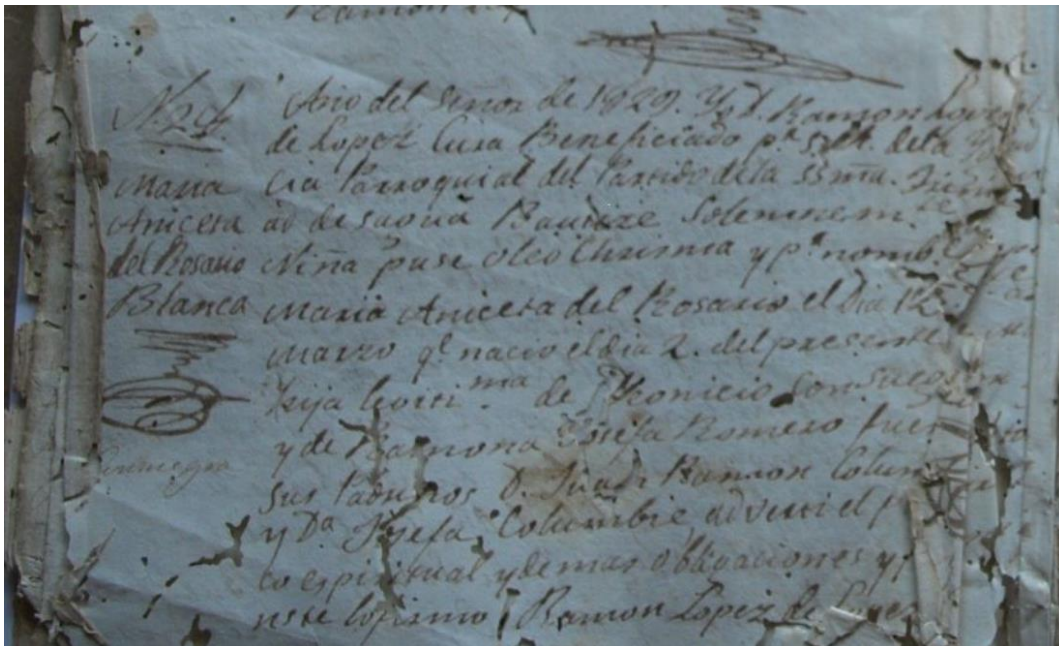 Ramon
N. 24.
Maria
Aniceta
del Rosario
Blanca
Año del Señor de 1829. Yo D. Ramon Lopez
de Lopez Cura Beneficiado pr. S. M. dela
cia Parroquial del Partido dela SSma. Trini
ad de sagua Bautize Solemnemte
Niña puse oleo Chrisma y pr. nombe
Maria Aniceta del Rosario el dia 12 de
Marzo qe. nacio el dia 2. del presente
hija lexiti.ma de
y de Ramona Josefa Romero fueron
sus Padrinos D. Juan Ramon Columbie
y Da. Josefa Columbie, adverti el
co espiritual y demas obligaciones y
nste lo firmo Ramon Lopez de Lopez